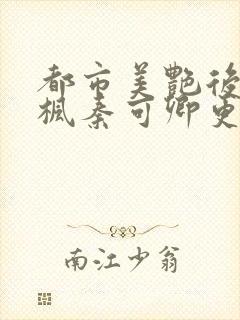 都市美艷後
楓秦可卿更
南江少翁